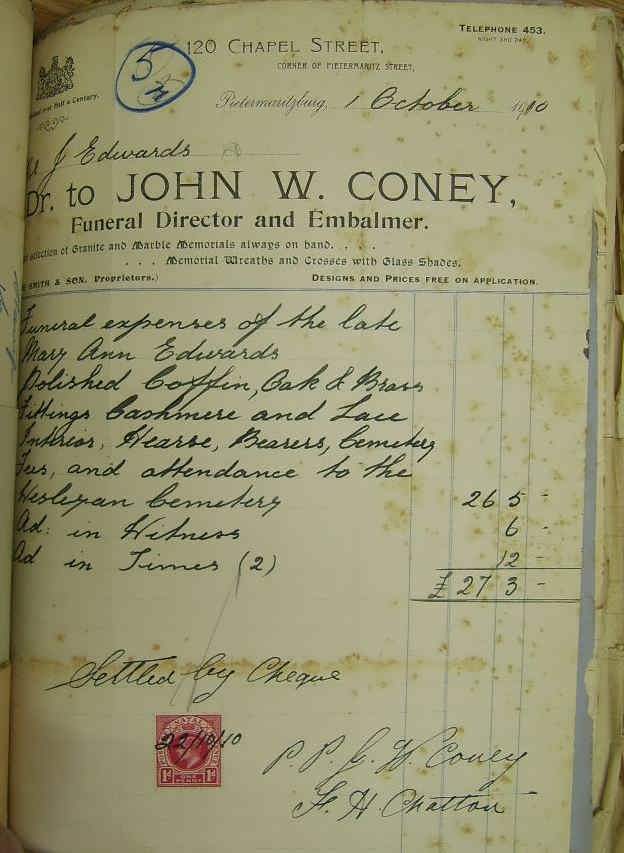 TELEPHONE 453.
NIGHT AND DAY.
120 CHAPEL STREET,
CORNER OF PIETERMARITZ STREET,
over Half a Century.
5
Pietermaritzburg, 1 October 1910
J Edwards
Dr. to JOHN W. CONEY,
Funeral Director and Embalmer.
selection of Granite and Marble Memorials always on hand. . . .
. . . Memorial Wreaths and Crosses with Glass Shades.
SMITH & SON. Proprietors.) DESIGNS AND PRICES FREE ON APPLICATION.
Funeral expenses of the late
Mary Ann Edwards
Polished Coffin, Oak & Brass
Fittings Cashmere and Lace
Interior, Hearse, Bearers, Cemetery
Fees, and attendance to the
Wesleyan Cemetery 26 5 -
Ad: in Witness 6 -
Ad in Times (2) 12 -
£ 27 3 -
Settled by Cheque
NATAL
22/10/10
1d ONE PENNY 1d
P. P. J. W. Coney